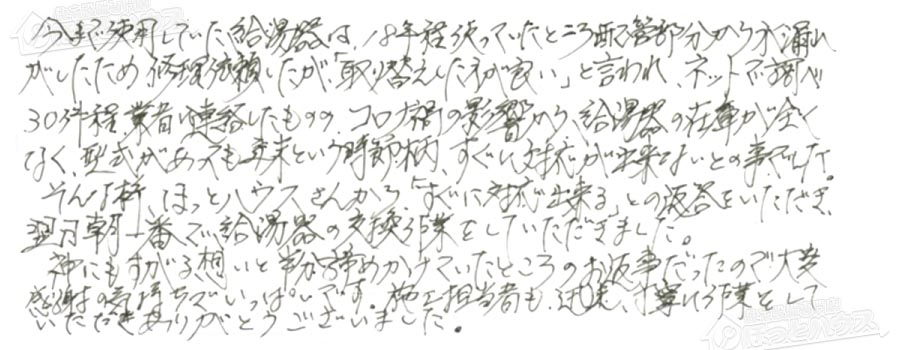 今まで使用していた給湯器は、18年程使っていたところ配管部分から水漏れ
がしたため修理依頼したが、「取り替えした方が良い」と言われ、ネットで調べ
30件程業者に連絡したものの、コロナ禍の影響から、給湯器の在庫が全く
なく、型式があっても年末という時節柄、すぐに対応が出来ないとの事でした。
そんな折、ほっとハウスさんから「すぐに対応出来る」との返答をいただき、
翌日朝一番で給湯器の交換作業をしていただきました。
神にもすがる想いと半分諦めかけていたところのお返事だったので大変
感謝の気持ちでいっぱいです。施工担当者も迅速、丁寧に作業をして
いただきありがとうございました。
ほっとハウス